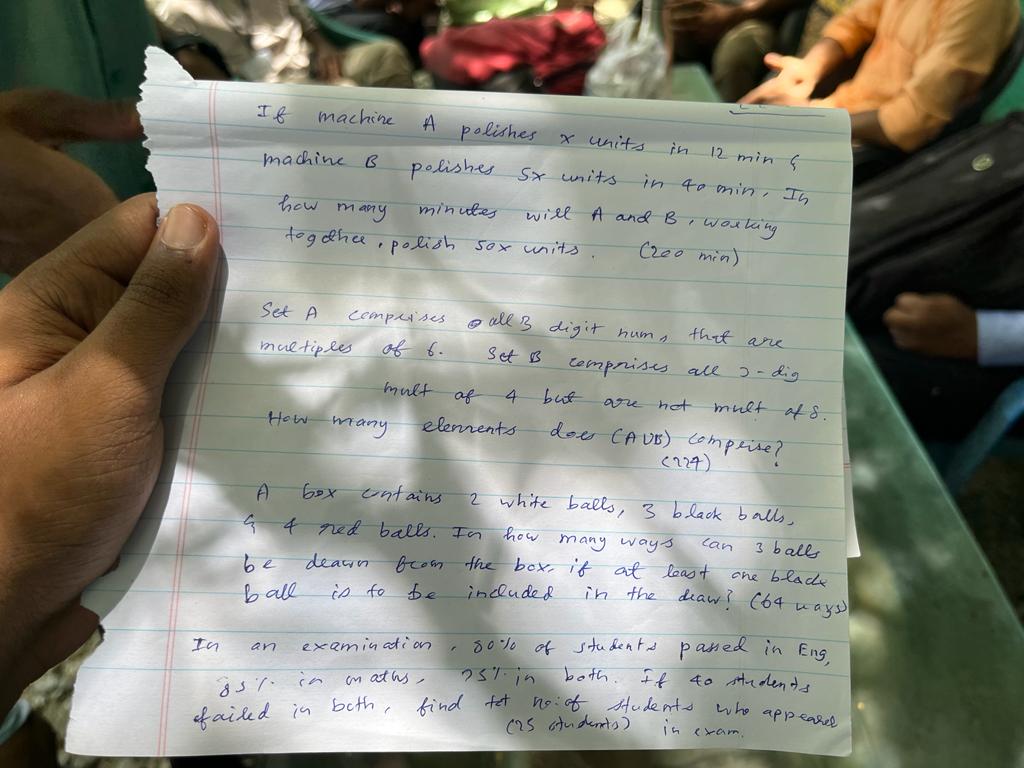 If machine A polishes x units in 12 min &
machine B polishes 5x units in 40 min, In
how many minutes will A and B, working
together, polish 50x units. (200 min)
Set A comprises all 3 digit nums that are
multiples of 6. Set B comprises all 3-dig
mult of 4 but are not mult of 8.
How many elements does (AUB) comprise?
(224)
A box contains 2 white balls, 3 black balls,
& 4 red balls. In how many ways can 3 balls
be drawn from the box, if at least one black
ball is to be included in the draw? (64 ways)
In an examination, 80% of students passed in Eng,
85% in maths, 75% in both. If 40 students
failed in both, find tot no: of students who appeared
(25 students) in exam.